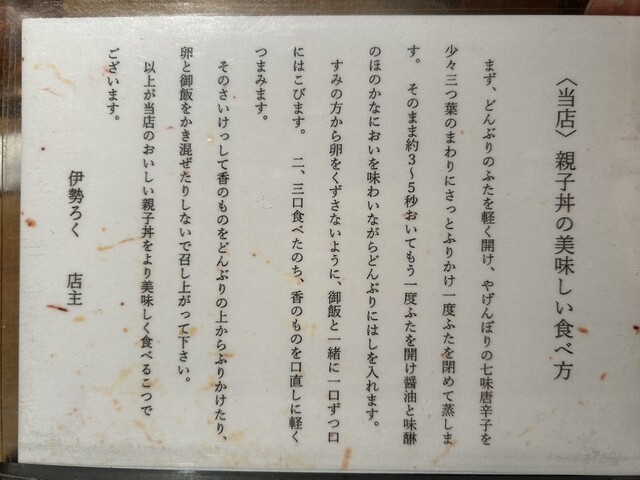 〈当店〉親子丼の美味しい食べ方
まず、どんぶりのふたを軽く開け、やげんぼりの七味唐辛子を
少々三つ葉のまわりにさっとふりかけ一度ふたを閉めて蒸しま
す。　そのまま約３～５秒おいてもう一度ふたを開け醤油と味醂
のほのかなにおいを味わいながらどんぶりにはしを入れます。
すみの方から卵をくずさないように、御飯と一緒に一口ずつ口
にはこびます。　二、三口食べたのち、香のものを口直しに軽く
つまみます。
そのさいけっして香のものをどんぶりの上からふりかけたり、
卵と御飯をかき混ぜたりしないで召し上がって下さい。
以上が当店のおいしい親子丼をより美味しく食べるこつで
ございます。
伊勢ろく　店主